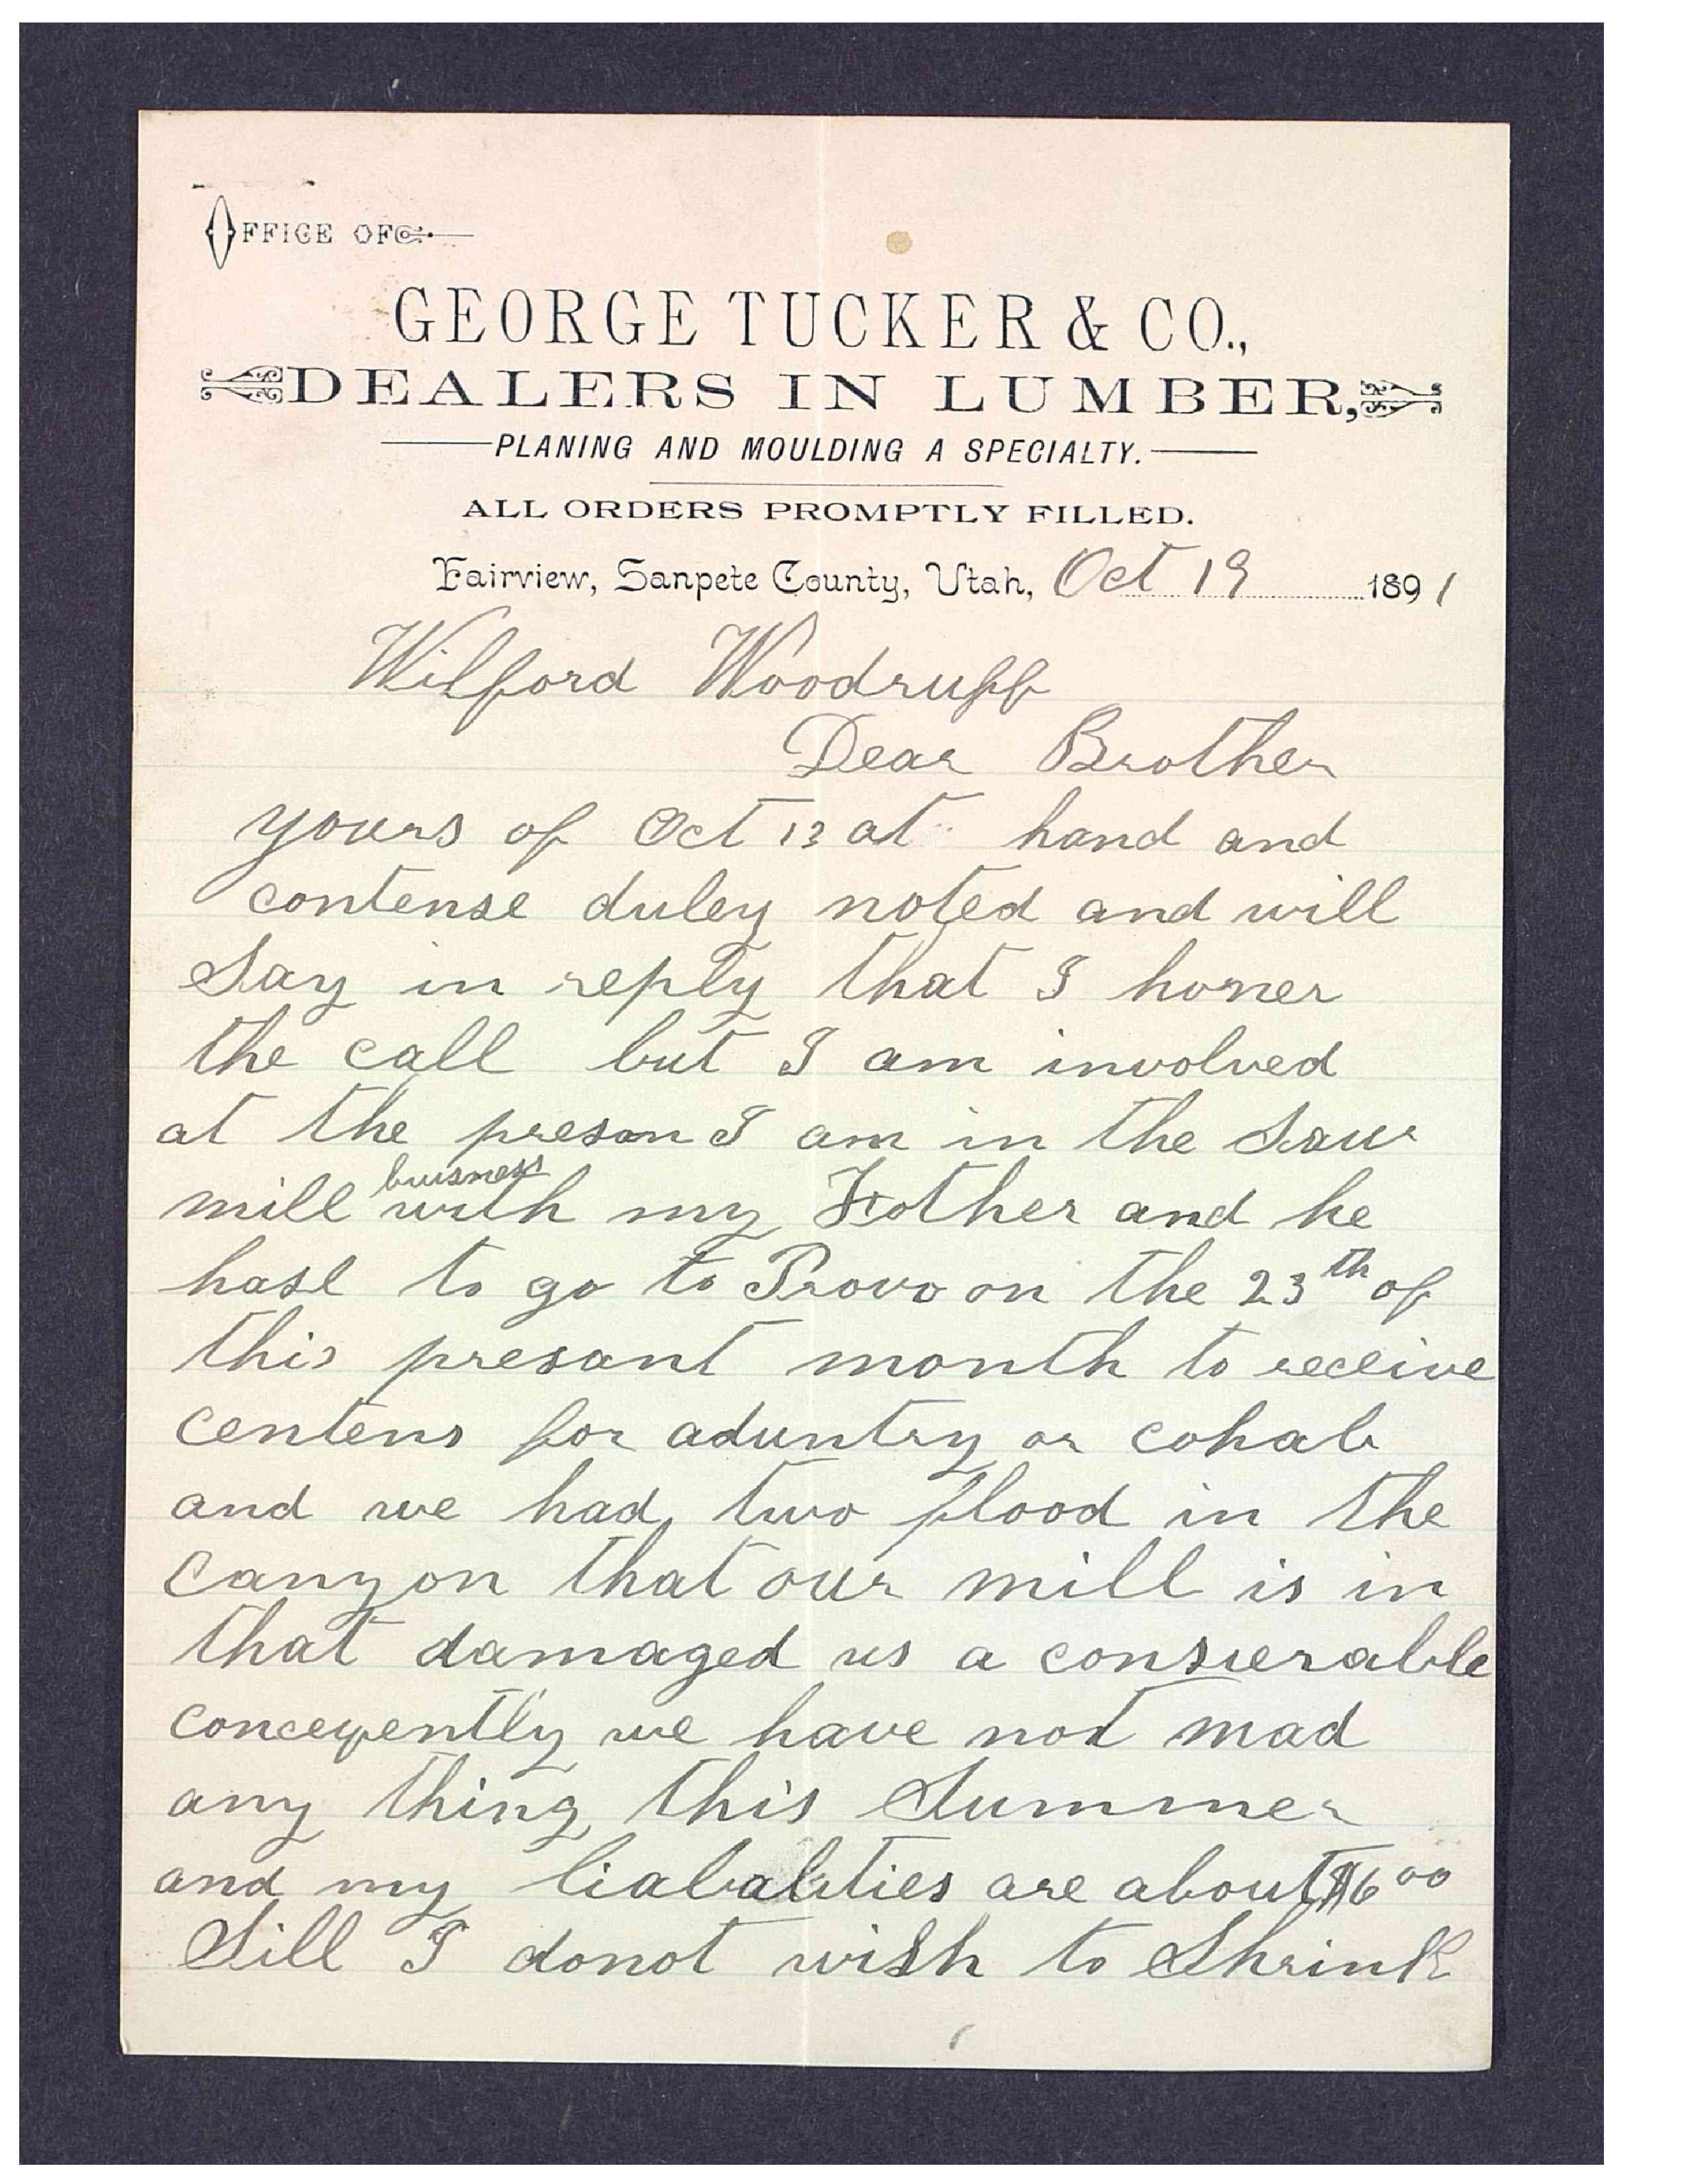 OFFICE OF
GEORGE TUCKER & CO.,
DEALERS IN LUMBER,
PLANING AND MOULDING A SPECIALTY.
ALL ORDERS PROMPTLY FILLED.
Fairview, Sanpete County, Utah, Oct 19 1891
Wilford Woodruff
Dear Brother
yours of Oct 13 at hand and
contense duley noted and will
Say in reply that I honer
the call but I am involved
at the presan I am in the Saw
buisness
mill with my Father and he
hase to go to Provo on the 23th of
this presant month to receive
centens for aduntry or cohab
and we had two flood in the
Canyon that our mill is in
that damaged us a consierable
conceqently we have not mad
any thing this Summer
and my liabalities are about $600
Sill I donot wish to Shrink